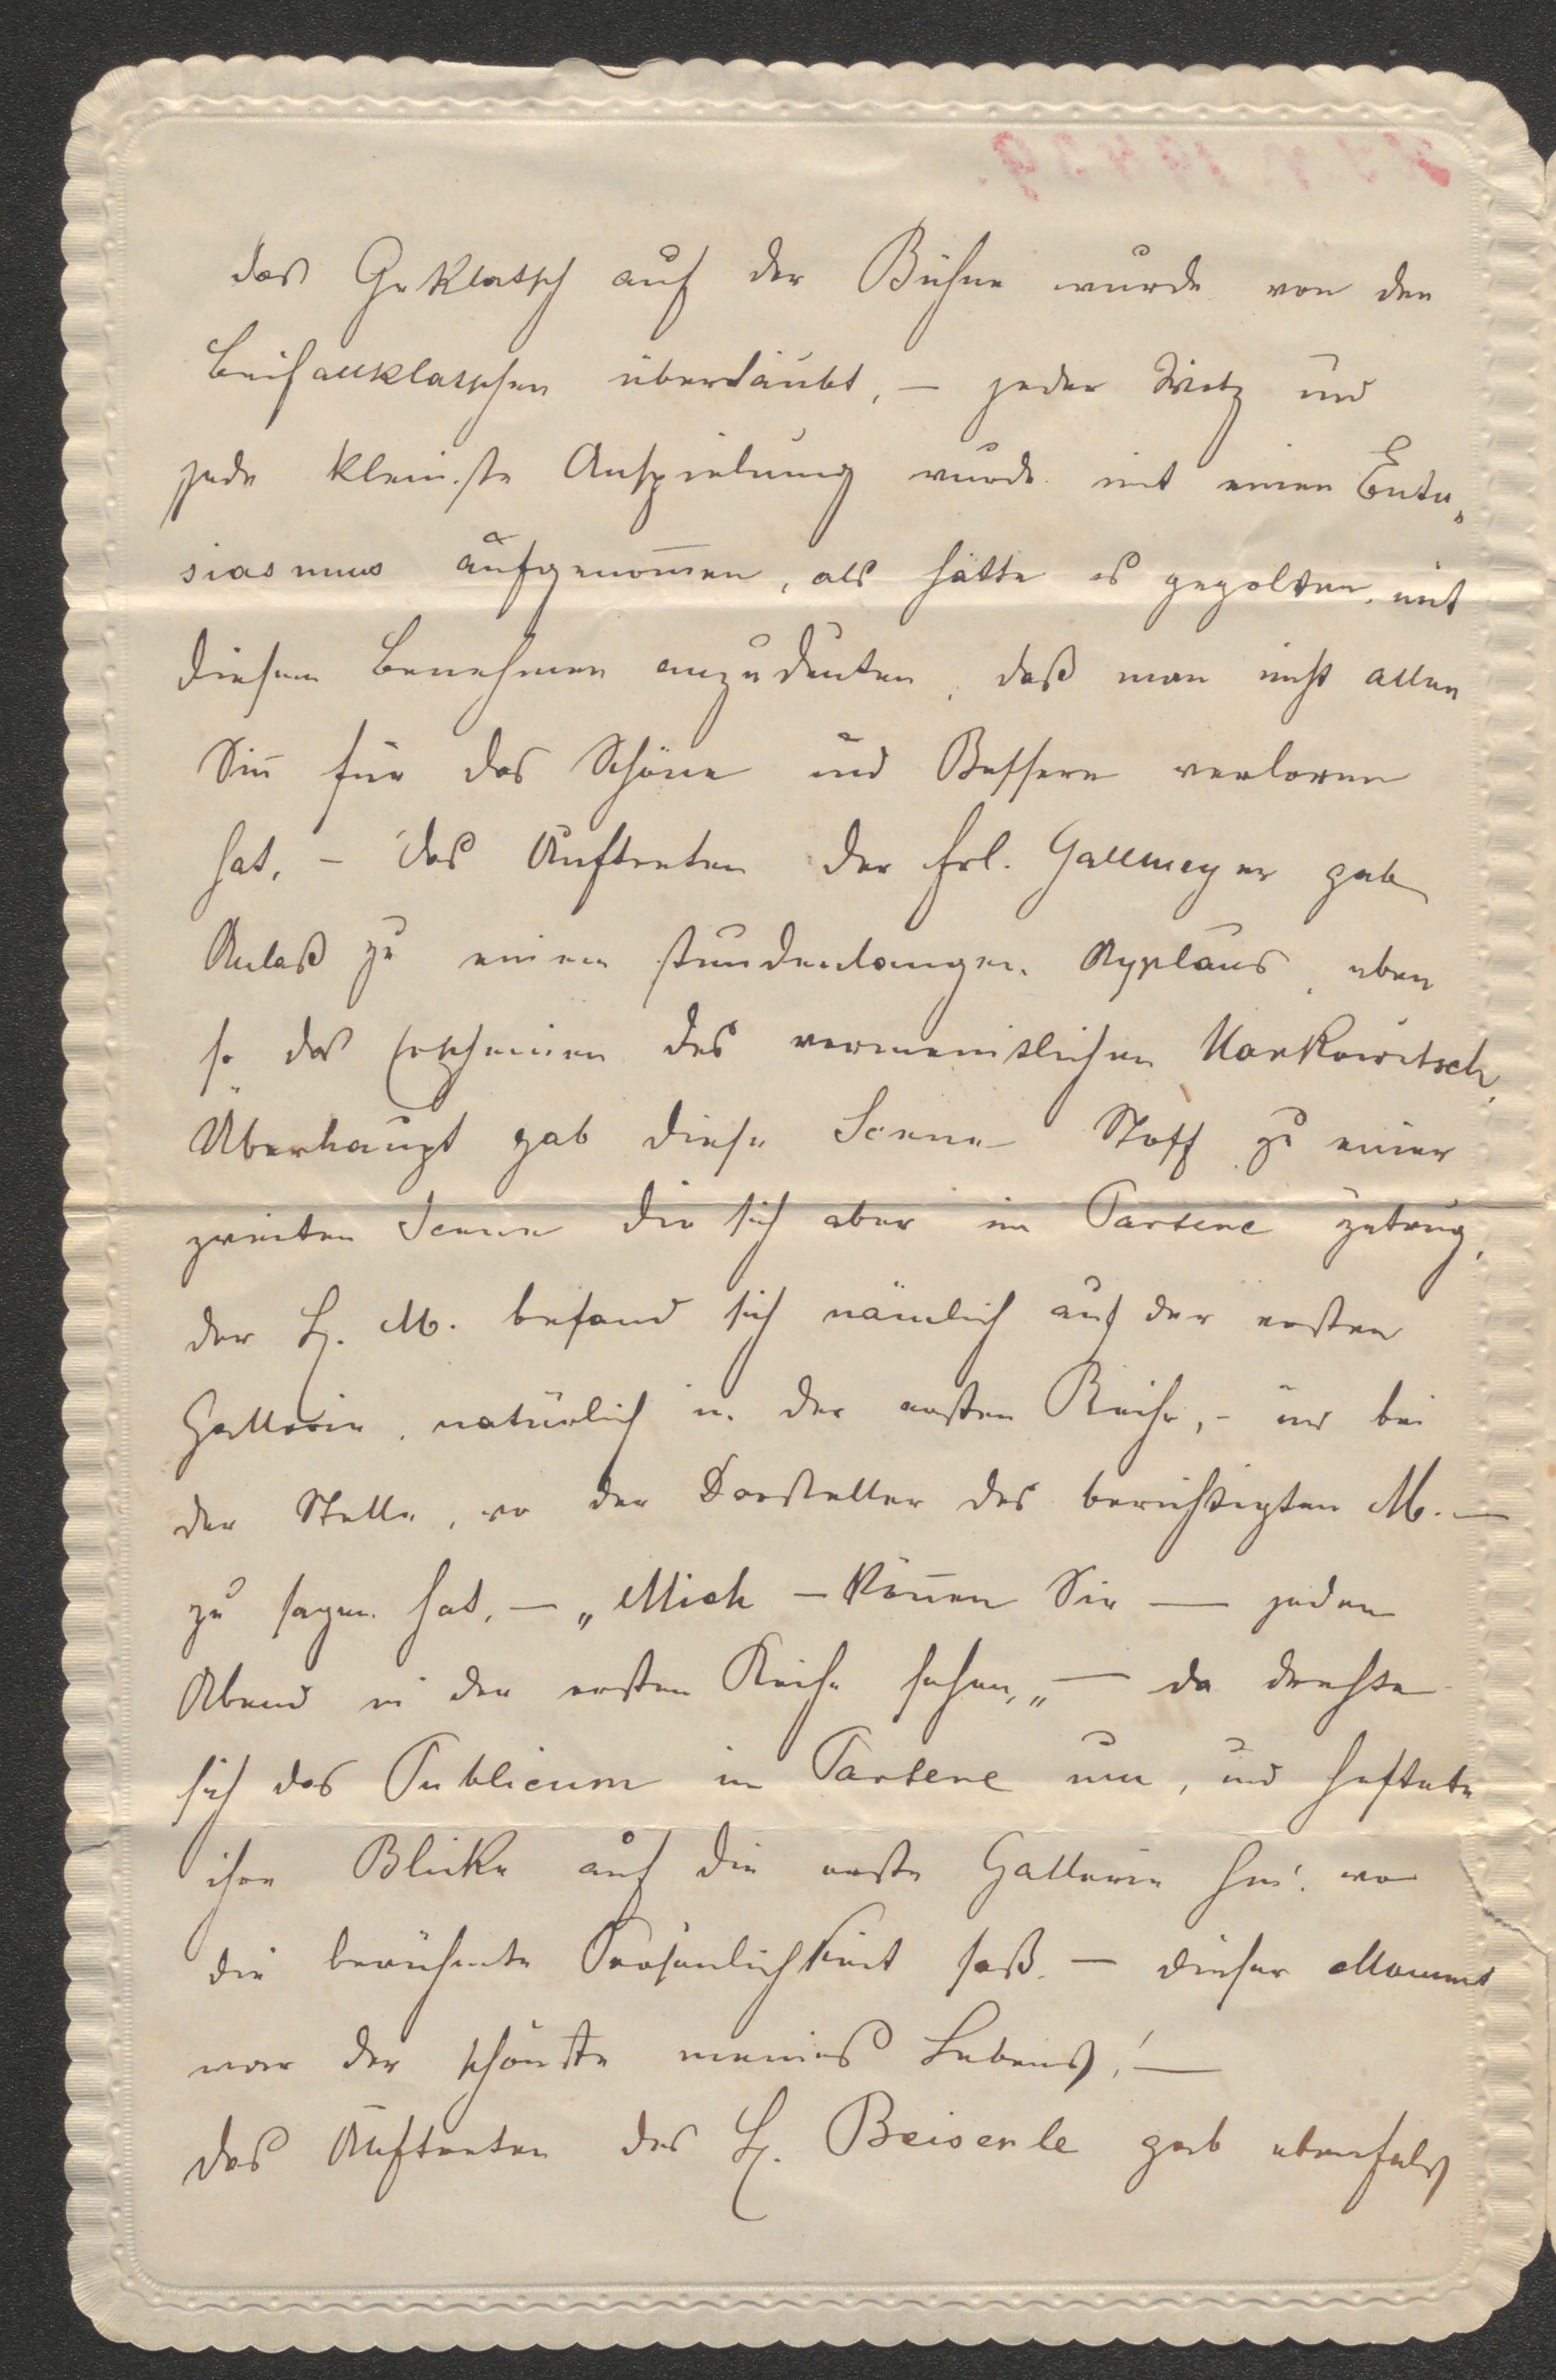 das Geklatsch auf der Bühne wurde von den
Beifallklatschen übertäubt, — jeder Witz und
jede kleinste Anspielung wurde mit einen Entu„
siasmus aufgenom̄en, als hätte es gegolten, mit
diesem Benehmen anzudeuten, daß man nicht allen
Sin̄ für das Schöne und Bessere verloren
hat. – das Auftreten der Frl. Gallmeyer gab
Anlaß zu einem stundenlangen Applaus, eben
so das Erscheinen des vermeintlichen Markowitsch,
Überhaupt gab diese Scene Stoff zu einer
zweiten Scene die sich aber im Parterre zutrug,
der H. M. befand sich nämlich auf der ersten
Gallerie, natürlich in der ersten Reihe, – und bei
der Stelle, wo der Darsteller des berüchtigten M. —
zu sagen hat, — „Mich — kön̄en Sie — jeden
Abend in der ersten Reihe sehen,„ — da drehte
sich das Publicum im Parterre um, und heftete
ihre Blicke auf die erste Gallerie hin, wo
die berühmte Persönlichkeit saß. — dieser Moment
war der schönste meines Lebens! —
das Auftreten des H. Beiserle gab ebenfalls